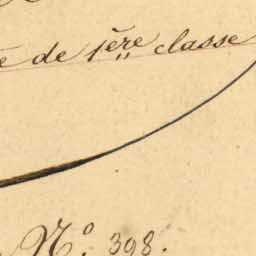 de 1ère classe
Nº 398.